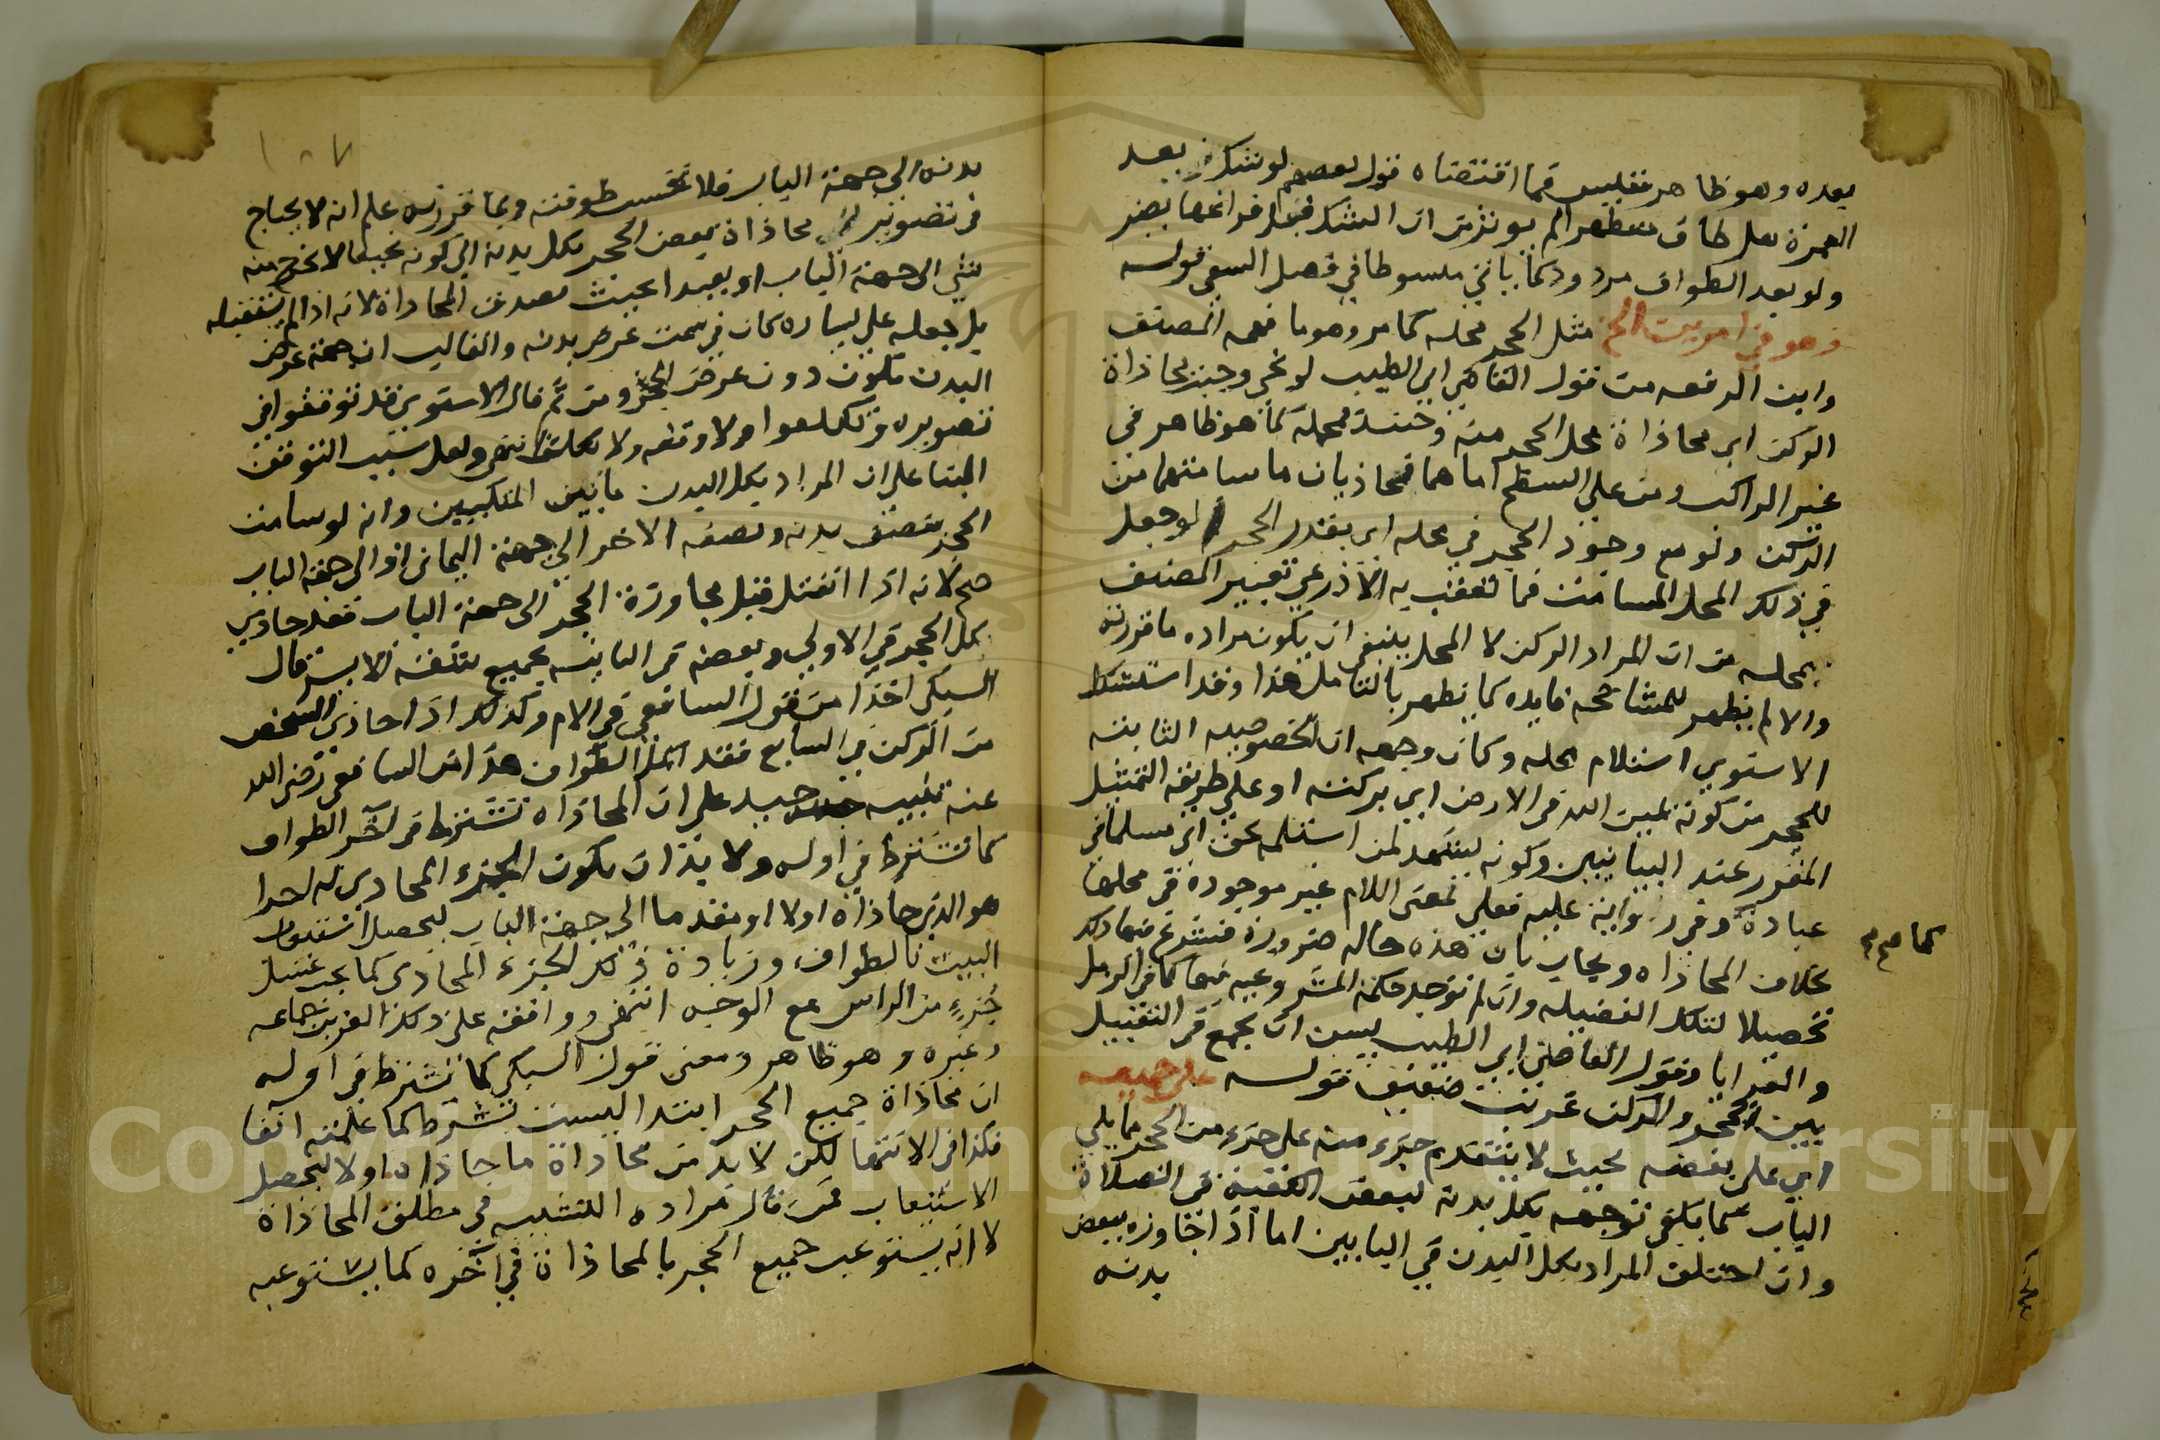 بعده وهو ظاهر فليس فما اقتضاه قول بعضهم لو شك بعد
العمرة هل طاف متطهرا لم يؤثر من ان الشك فيها بعد فراغها يضر
ولو بعد الطواف مردود كما ياتي مبسوطا في فصل السعي قوله
مثل الحجر محله كما مر وهو ما فهمه المصنف
وابن الرفعه من قول القاضي ابي الطيب لو نحي وجبت محاذاة
الركن اي محاذاة محل الحجر منه وخنسة محله كما هو ظاهر في
غير الراكب ومن على السطح اما هما فيحاذيان ما سامتهما من
الركن ولو مع وجود الحجر في محله اي بقدر الحجر لو جعل
في ذلك المحل المسامت فما تعقب به الاذرعي تعبير المصنف
بمحله من ان المراد الركن لا المحل ينبغي ان يكون مراده ما قررته
والا لم يظهر للمشاححه فايده كما يظهر بالتامل هذا وقد استشكل
الاسنوي استلام محله وكان وجهه ان الخصوصيه الثابته
للحجر من كونه يمين الله في الارض اي بركته او على طريقه التمثيل
المقرر عند البيانيين وكونه ليشهد لمن استلمه بحق اي مسلما في
عبادة وفي رواية عليه فعلى بمعنى اللام غير موجودة في محلها
بخلاف المحاذاه ويجاب بان هذه حاله ضرورة فشرع فيها ذلك
كما صح
تحصيلا لتلك الفضيله وان لم توجد حكمة المشروعيه فيها كما في الرمل
والقرايا وقول القاضي ابي الطيب يسن ان يجمع في التقبيل
بين الحجر والركن غريب ضعيف قوله على جميعه
اي على بعضه بحيث لا يتقدم جزء منه على جزء من الحجر مما يلي
الباب كما يكفي توجهه بكل بدنه لبعض الكعبة في الصلاة
وان اختلف المراد بكل البدن في البابين اما اذا جاوزه ببعض
بدنه
١٠٧
بدنه الى جهة الباب فلا تحسب طوفته وبما قررته علم انه لا يحتاج
في تصوير محاذاة بعض الحجر بكل بدنه الى كونه نحيفا لا يخرج منه
شي الى جهة الباب او بعيدا بحيث تصدق المحاذاة لانه اذا لم يستقبله
بل جعله على يساره كان في سمت عرض بدنه والغالب ان جهة عرض
البدن تكون دون عرض الحجر ومن ثم قال الاسنوي قد توقفوا في
تصويره وتكلموا ولا وقفه ولا تكلف انتهى ولعل سبب التوقف
البنا على ان المراد بكل البدن ما بين المنكبين وانه لو سامت
الحجر بنصف بدنه ونصفه الاخر الى جهة اليماني او الى جهة الباب
صح لانه اذا انفتل قبل مجاوزة الحجر الى جهة الباب فقد حاذى
كل الحجر في الاولى وبعضه في الثانيه بجميع شقه الايسر قال
السبكي اخذا من قول الشافعي في الام وكذلك اذا حاذى الشخص
من الركن في السابع فقد اكمل الطواف هذا من الشافعي رضي الله
عنه تنبيه جيد على ان المحاذاه تشترط في آخر الطواف
كما تشترط في اوله ولا بد ان يكون الجزء المحاذي له اخرا
هو الذي حاذاه اولا او مقدما الى جهة الباب ليحصل استيعاب
البيت بالطواف وزيادة ذلك الجزء المحاذي كما يجب غسل
جُزءٍ من الراس مع الوجه انتهى ووافقه على ذلك العز بن جماعه
وغيره وهو ظاهر ومعنى قول السبكي كما تشترط في اوله
ان محاذاة جميع الحجر ابتدا ليست تشترط كما علمته انفا
فكذا في الانتها لكن لا بد من محاذاة ما حاذاه اولا ليحصل
الاستيعاب فمن قال مراده التشبيه في مطلق المحاذاة
لا انه يستوعب جميع الحجر بالمحاذاة في آخره كما يستوعبه